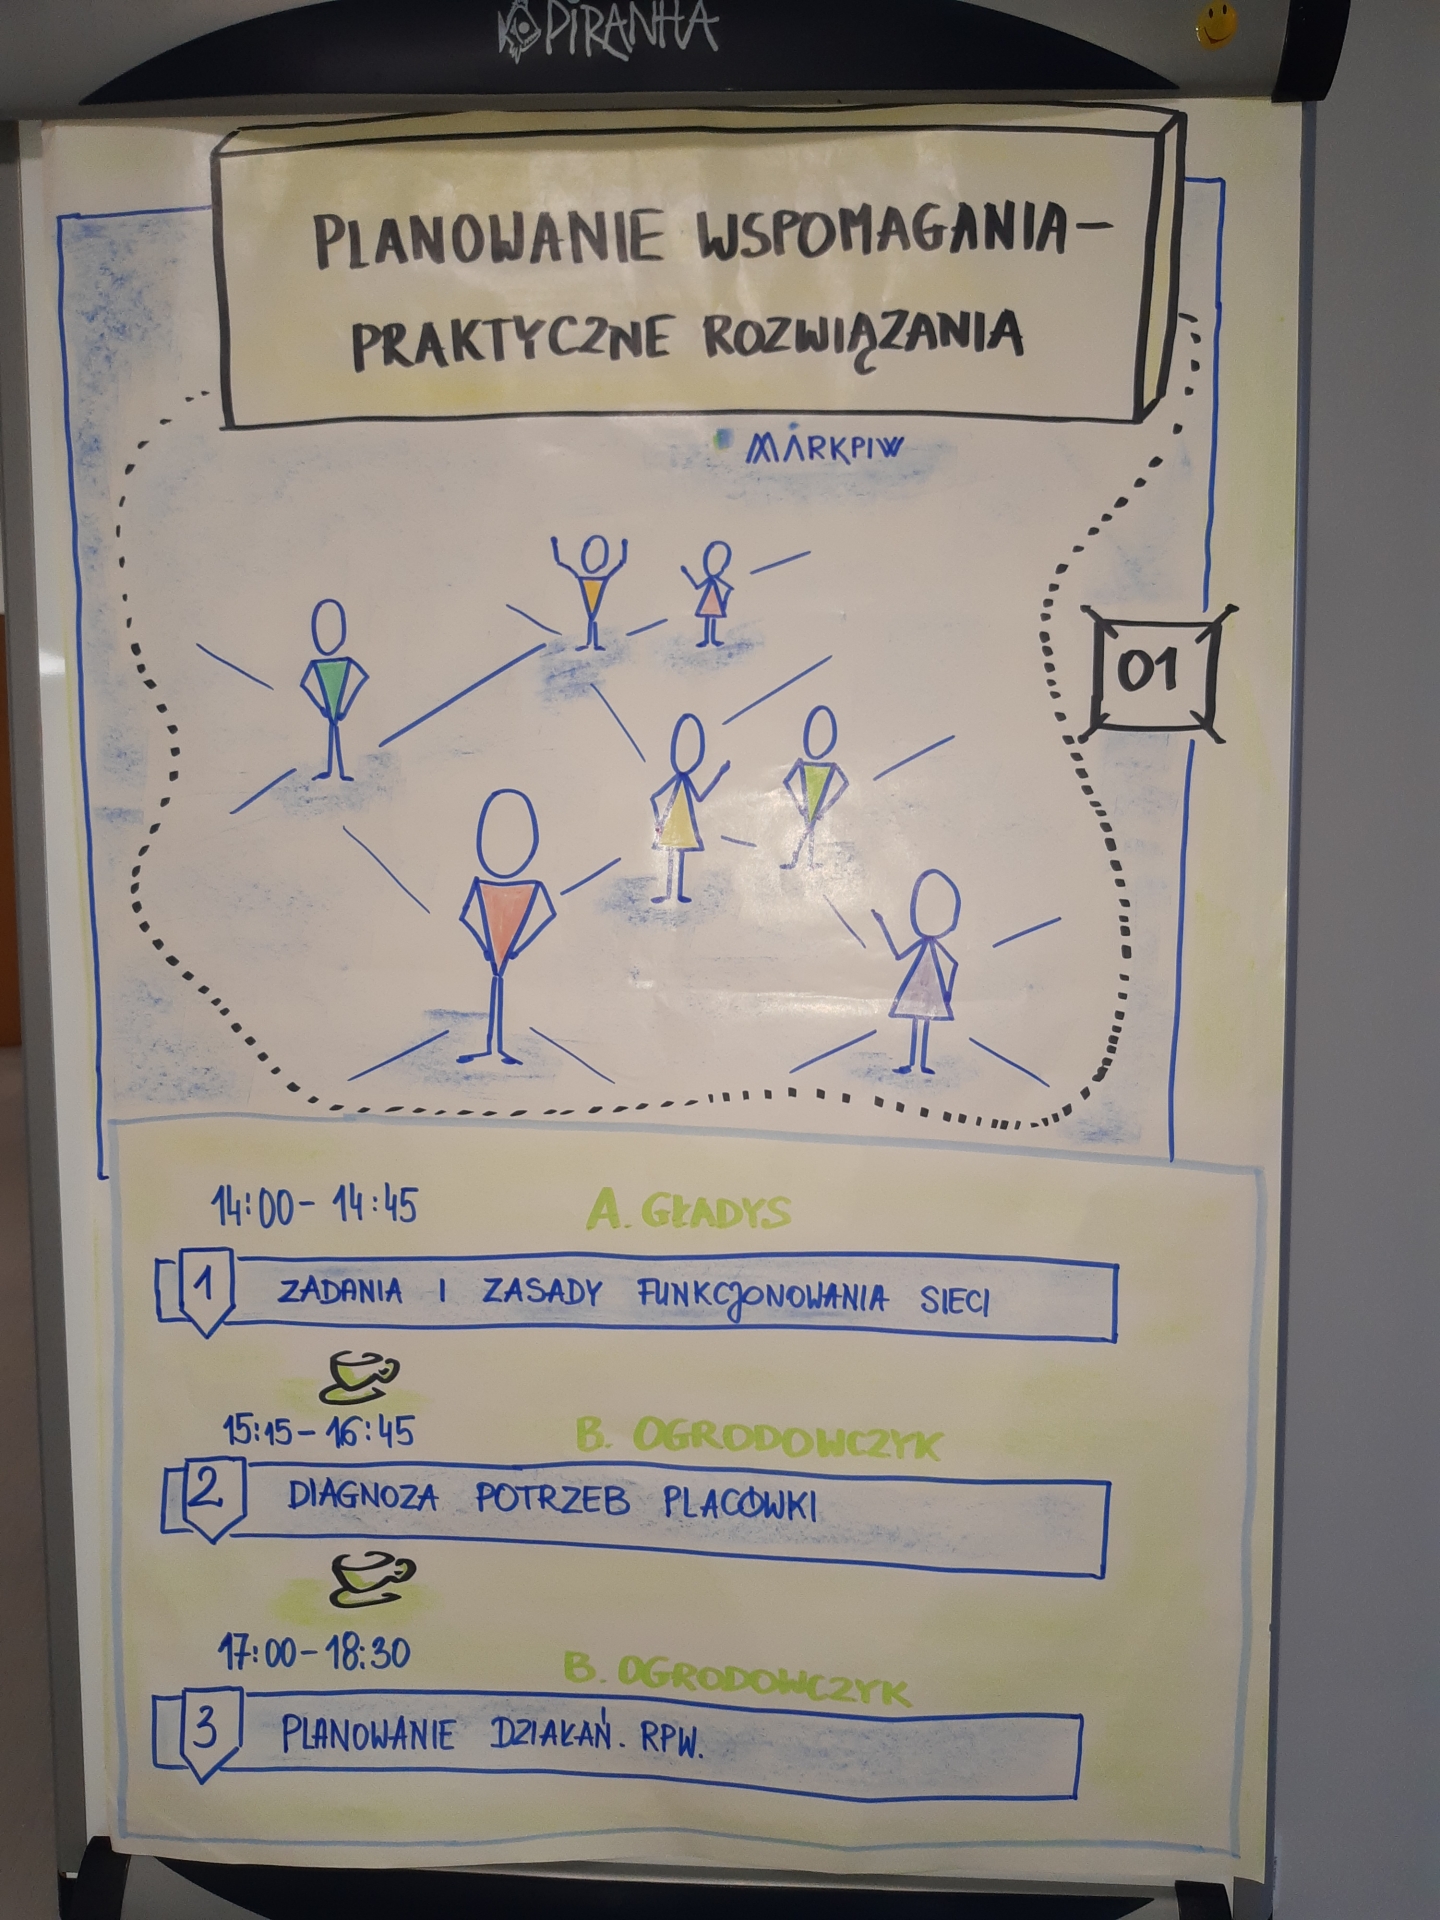 PIRANHA
PLANOWANIE WSPOMAGANIA-
PRAKTYCZNE ROZWIĄZANIA
MARKPIW
01
14:00- 14:45 A. GŁADYS
1 ZADANIA I ZASADY FUNKCJONOWANIA SIECI
15:15-16:45 B. OGRODOWCZYK
2 DIAGNOZA POTRZEB PLACÓWKI
17:00-18:30 B. OGRODOWCZYK
3 PLANOWANIE DZIAŁAŃ. RPW.